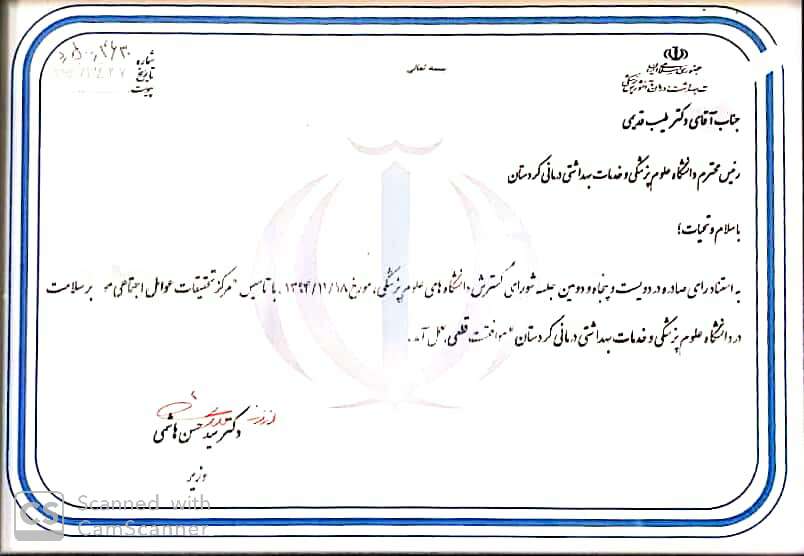 بسمه تعالی
جمهوری اسلامی ایران
وزارت بهداشت، درمان و آموزش پزشکی
شماره
تاریخ
پیوست
جناب آقای دکتر طیب قدیمی
رئیس محترم دانشگاه علوم پزشکی و خدمات بهداشتی درمانی کردستان
با سلام و تحیات؛
به استناد رای صادره در دویست و پنجاه و دومین جلسه شورای گسترش دانشگاه های علوم پزشکی، مورخ ۱۳۹۴/۱۱/۱۸، با تاسیس "مرکز تحقیقات عوامل اجتماعی مو بر سلامت
در دانشگاه علوم پزشکی و خدمات بهداشتی درمانی کردستان" موافقت قطعی بعمل آمد.
دکتر سید حسن هاشمی
وزیر
CS Scanned with
CamScanner